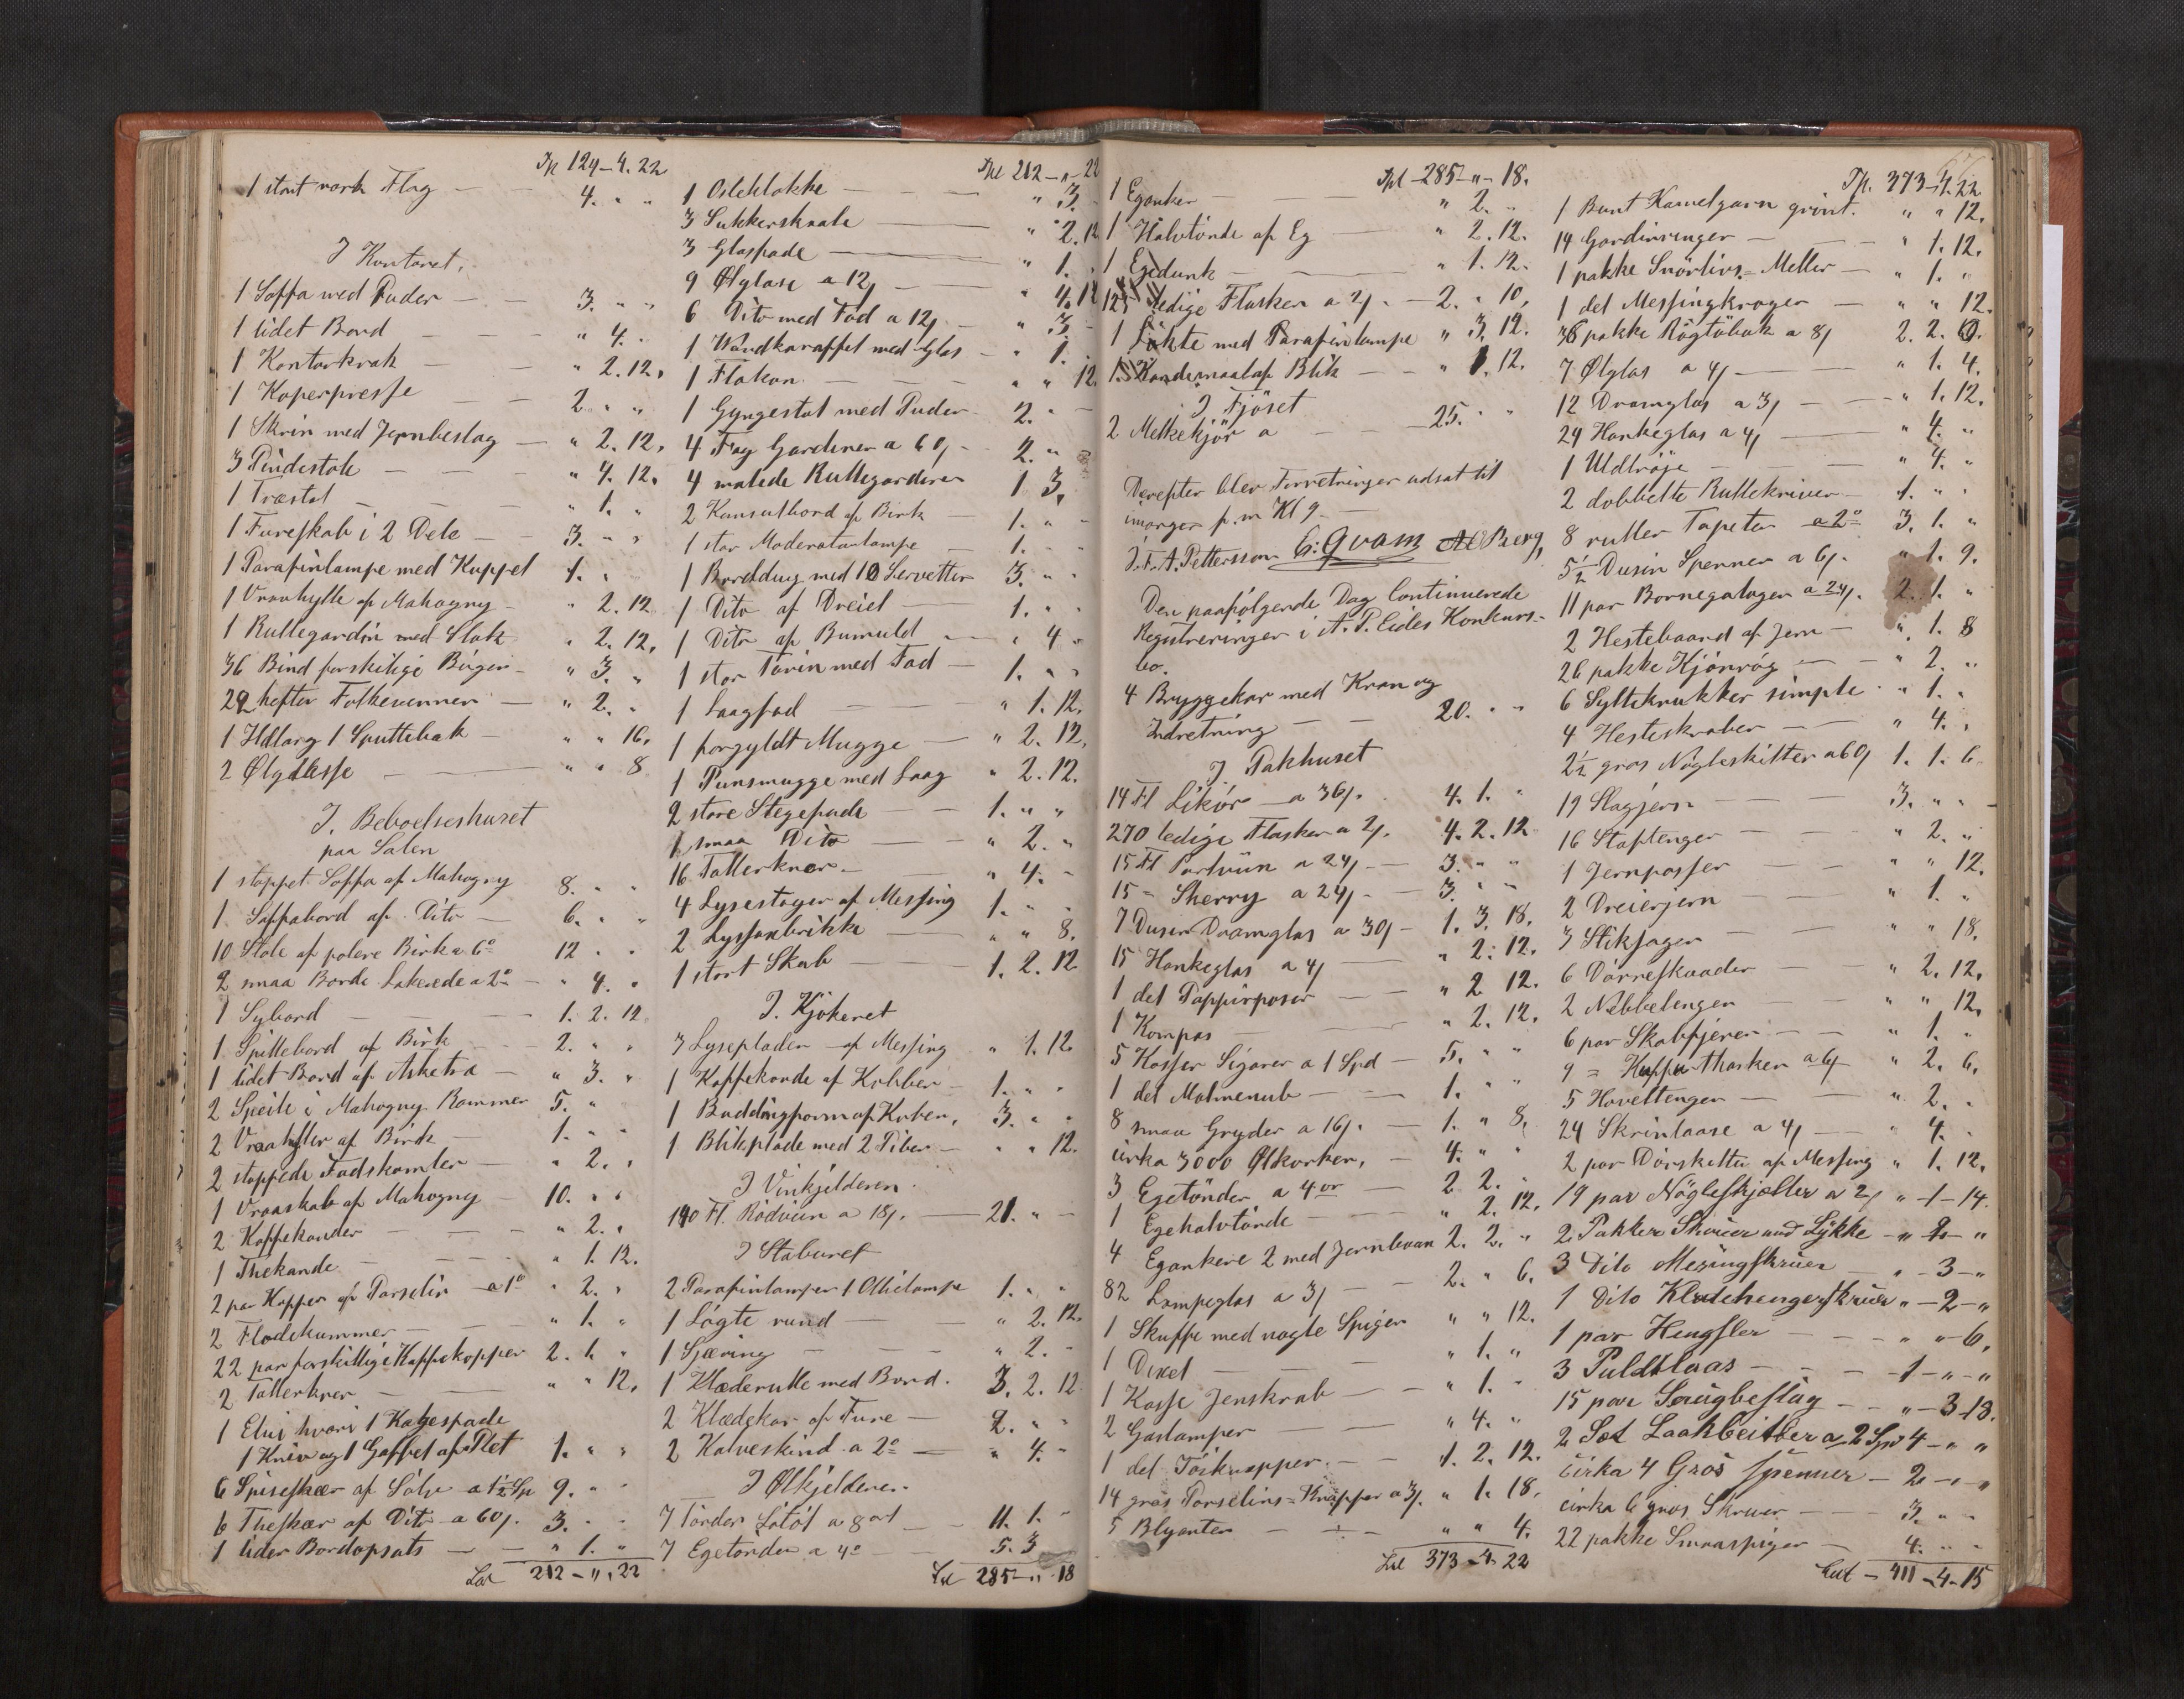 Tp 124 - 4. 22
1 stort norsk Flag — 4. " "
I Kontoret.
1 Soffa med Puder — 3. " "
1 lidet Bord — " 4. "
1 Kontorkrak — " 2. 12.
1 Koperpresse — 2. " "
1 Skrin med Jernbeslag — " 2. 12.
3 Pindestole — " 4. 12.
1 Træstol — " 1. "
1 Fureskab i 2 Dele — 3. " "
1 Parafinlampe med Kuppel 1. "
1 Vraahylle af Mahogny — " 2. 12
1 Rullegardin med Stok " 2. 12.
36 Bind forskjellige Bøger — " 3. "
29 hefter Folkevennen — " 2. "
1 Ildtang 1 Spyttebak — " " 16.
2 Ølglasse — " " 8
I. Beboelseshuset
paa Salen
1 stoppet Soffa af Mahogny 8. " "
1 Soffabord af Dito — 6. " "
10 Stole af polere Birk a 6o 12 " "
2 smaa Borde Lakerede a 2o — " 4. "
1 Sybord — 1. 2. 12
1 Spillebord af Birk — 2. " "
1 lidet Bord af Asketræ — " 3. "
2 Speile i Mahogny Rammer 5. " "
2 Vraahyller af Birk — 1. " "
2 stoppede Fodskamler " 2. "
1 Vraaskab af Mahogny — 10. " "
2 Kaffekander — " 2. "
1 Thekande — " 1. 12.
2 par Kopper af Porselin a 1o " 2. "
2 Flødekummer — " 1. "
22 par forskjellige Kaffekopper 2. 1. "
2 Tallerkner — " " 12.
1 Etui hvori 1 Kagespade
1 Kniv og 1 Gaffel af Plet 1. " "
6 Spiseskær af Sølv a 1½ Sp 9. " "
6 Theskær af Dito a 60 β. 3. " "
1 liden Bordopsats — " 1. "
Lat 212 - " . 22
Tpl 212 - " - 22
1 Osteklokke — " 3. "
3 Sukkerskaale — " 2. 12
3 Glasfade — " 1. "
9 Ølglase a 12 β — " 4. 12
6 Dito med Fod a 12 β " 3 -
1 Vandkaraffel med Glas — " 1. "
1 Flakon — " " 12.
1 Gyngestol med Puder 2. " -
4 Fag Gardiner a 60 β — 2. " "
4 malede Rullegardiner 1 3.
2 Konsulbord af Birk — 1. " -
1 stor Moderatorlampe — 1. " -
1 Borddug med 10 Servetter 3. " "
1 Dito af Dreiel — 1. " "
1 Dito af Bumuld — " 4 "
1 stor Tarin med Fad — 1. " "
1 Laagfad — " 1. 12.
1 forgyldt Mugge — " 2. 12.
1 Punsmugge med Laag " 2. 12.
2 store Stegefade — 1. " "
1 smaa Dito — " 2. "
16 Tallerkner — " 4. -
4 Lysestager af Messing 1. " "
2 Lyssaxbrikke — " " 8.
1 stort Skab — 1. 2. 12
I. Kjøkenet
3 Lyseplader af Messing " 1. 12
1 Kaffekande af Kobber — 1. " "
1 Buddingform af Kober, 3. " "
1 Blikplade med 2 Piber — " " 12.
I Vinkjelderen.
140 Fl. Rødviin a 18 β. — 21. " —
I Staburet
2 Parafinlamper 1 Ollielampe 1. " "
1 Løgte rund — " 2. 12.
1 Sjæring — " 2. -
1 Klæderulle med Bord. 3. 2. 12
2 Klædekar af Fure — 2. " "
2 Kalveskind a 2o — " 4. "
I Ølkjelderen.
7 Tønder Lötøl a 8 ort — 11. 1. "
7 Egetønder a 4o — 5. 3
Lat 285 - " . 18
Tpl - 285 - " - 18.
1 Eganker — " 2. "
1 Halvtønde af Eg — " 2. 12.
1 Egedunk — " 1. 12.
125 ledige Flasker a 2 β. — 2. " 10.
1 Løkte med Parafinlampe " 3. 12.
1 Kandemaal af Blik — " 1. 12.
I Fjøset
2 Melkekjør a — 25. " "
Derefter blev Forretningen udsat til
imorgen f. m Kl 9 —
J. F. A. Pettersson G: Qvam A O Berg,
Den paafølgende Dag Continuerede
Registreringen i A. P. Eides Konkurs-
bo.
4 Bryggekar med Kran og
Indretning — 20. " "
I. Pakhuset
14 Fl Likör — a 36 β. 4. 1. "
270 ledige Flasker a 2 β. 4. 2. 12
15 Fl Portviin a 24 β — 3. " "
15 — Sherry a 24 β — 3. " "
7 Dusin Dramglas a 30 β — 1. 3. 18.
15 Hankeglas a 4 β — " 2. 12.
1 del Pappirposer — " 2 12.
1 Kompas — " 2. 12.
5 Kasser Sigarer a 1 Spd — 5. " "
1 del Malmerub — 1. " "
8 smaa Gryder a 16 β. — 1. " 8.
cirka 3000 Ølkorker, — 4. " "
3 Egetønder a 4 or — 2 2. "
1 Egehalvtønde — " 2. 12.
4 Egankere 2 med Jernbaan 2. 2. "
82 Lampeglas a 3 β — 2. " 6.
1 Skuffe med nogle Spiger " " 12.
1 Dixel — " 1. "
1 Kasse Jenskrab — " 1. "
2 Gaslamper — " 4. "
1 del Töiknapper — 1. 2. 12.
14 gros Porselins-Knapper a 3 β. " 1. 18.
5 Blyanter — " " 4.
Lat 373 - 4. 22
Tp. 373 - 4. 22
1 Bunt Kamelgarn grønt. " " 12.
14 Gardinringer — " 1. 12.
1 pakke Snörlivs-Meller — " 1. "
1 del Messingkroger — " " 12.
36 pakke Rögtobak a 8 β 2. 2. 0.
7 Ølglas a 4 β — " 1. 4.
12 Dramglas a 3 β — " 1. 12.
24 Hankeglas a 4 β — " 4. "
1 Uldtrøje — " 4. "
2 dobbelte Rullekriver — 1. " "
8 ruller Tapeter a 2o 3. 1. "
5½ Dusin Spenner a 6 β. " 1. 9.
11 par Bornegaloger a 24 β. 2. 1. "
2 Hestebaand af Jern — " 1. 8
26 pakke Kjönrög — " 2. "
6 Syltekrukker simple " 1. "
4 Hesteskraber — " 4. "
2½ gros Nögleskilter a 60 β 1. 1. 6
19 Slagjern — 3. " "
16 Staptenger — " 2. "
1 Jernpasser — " " 12.
2 Dreierjern — " 1. "
3 Stiksager — " " 18.
6 Dörreskaader — " 2. 12.
2 Nebbetenger — " " 12.
6 par Skabhjerer — " 1. "
9 = Kuffur Hasker a 6 β " 2. 6.
5 Hovettenger — " 2. "
24 Skrinlaase a 4 β — " 4. "
2 par Dörskilter af Messing " 1. 12.
19 par Nögleskjolter a 2 β " - 1 - 14.
2 Pakker Skruer med Lykke — " 2 — "
3 Dito Mesingskruer — " - 3 - "
1 Dito Klædehengerskruer " - 2 - "
1 par Hengsler — " " 6.
3 Puldtlaas — 1 - " - "
15 par Saugbeslag — " - 3 - 18.
2 Sæt Laakbeitler a 2 Spd 4 - " "
Cirka 4 Gros Spenner — 2 - " - "
cirka 6 gros Skruer — 3. " "
22 pakke Smaaspiger — 4. " "
Lat — 411 - 4 - 15